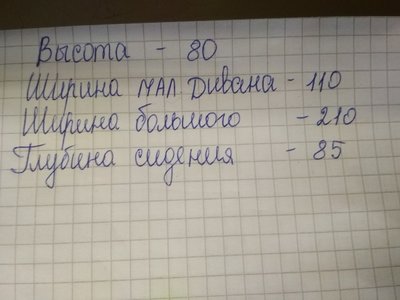 Высота - 80
Ширина МАЛ. Дивана - 110
Ширина большого - 210
Глубина сидения - 85